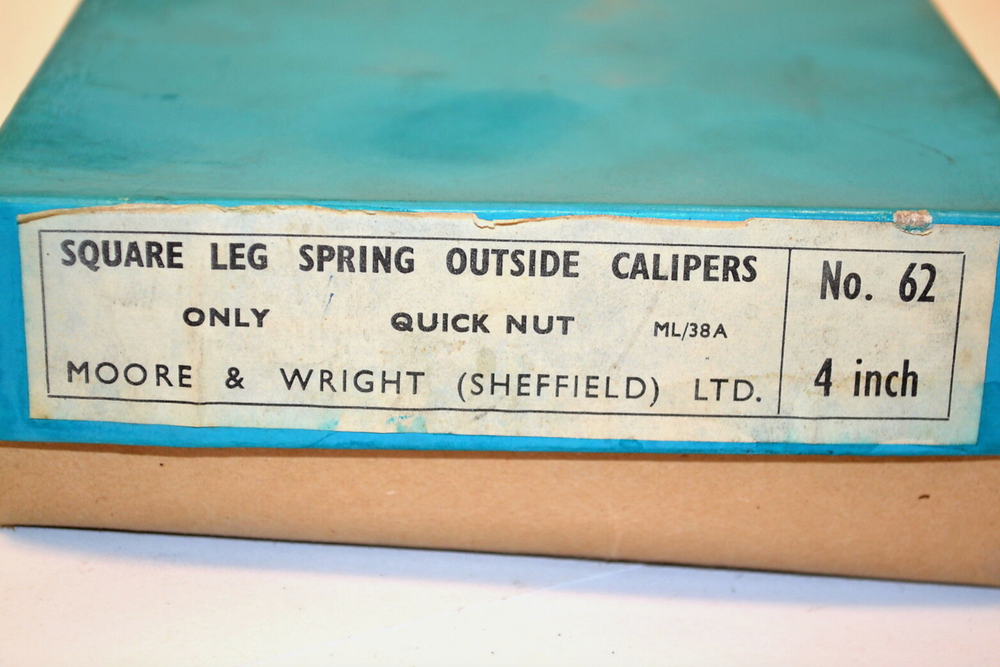 SQUARE LEG SPRING OUTSIDE CALIPERS
ONLY QUICK NUT ML/38A
MOORE & WRIGHT (SHEFFIELD) LTD.
No. 62
4 inch